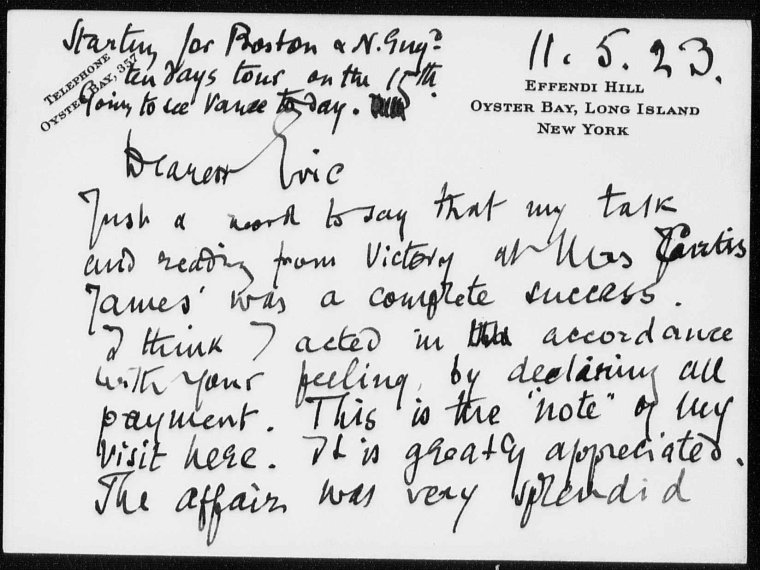 Starting for Boston & N. Engd
ten days tour on the 15th.
Going to see Vance to day.
TELEPHONE
OYSTER BAY, 357
11. 5. 23.
EFFENDI HILL
OYSTER BAY, LONG ISLAND
NEW YORK
Dearest Eric
Just a word to say that my talk
and reading from Victory at Mrs Curtis
James' was a complete success.
I think I acted in accordance
with your feeling, by declining all
payment. This is the "note" of my
visit here. It is greatly appreciated.
The affair was very splendid